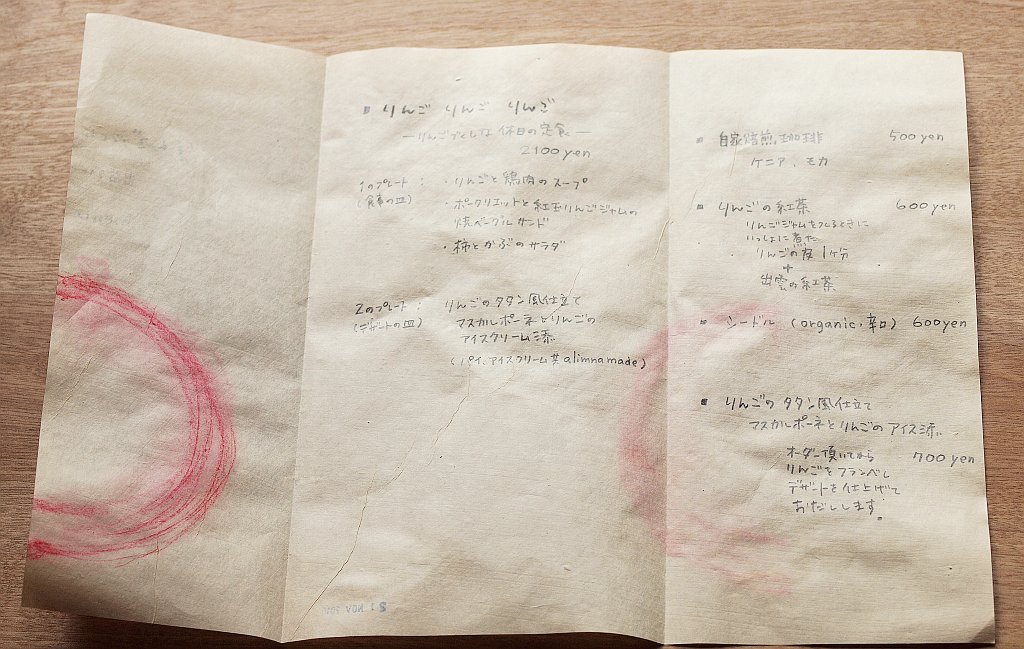 ■ りんご りんご りんご
―りんごづくしな 休日の定食―
2100yen
1のプレート： ・りんごと鶏肉のスープ
(食事の皿) ・ポークリエットと紅玉りんごジャムの
焼ベーグルサンド
・柿とかぶのサラダ
2のプレート： りんごのタタン風仕立て
(デザートの皿) マスカルポーネとりんごの
アイスクリーム添
(パイ、アイスクリーム共alimnamade)
■ 自家焙煎珈琲 500yen
ケニア、モカ
■ りんごの紅茶 600yen
りんごジャムをつくるときに
いっしょに煮た
りんごの皮1ヶ分
+
出雲の紅茶
■ シードル (organic・辛口) 600yen
■ りんごのタタン風仕立て
マスカルポーネとりんごのアイス添
オーダー頂いてから 700yen
りんごをフランベし
デザートを仕上げて
おだしします。